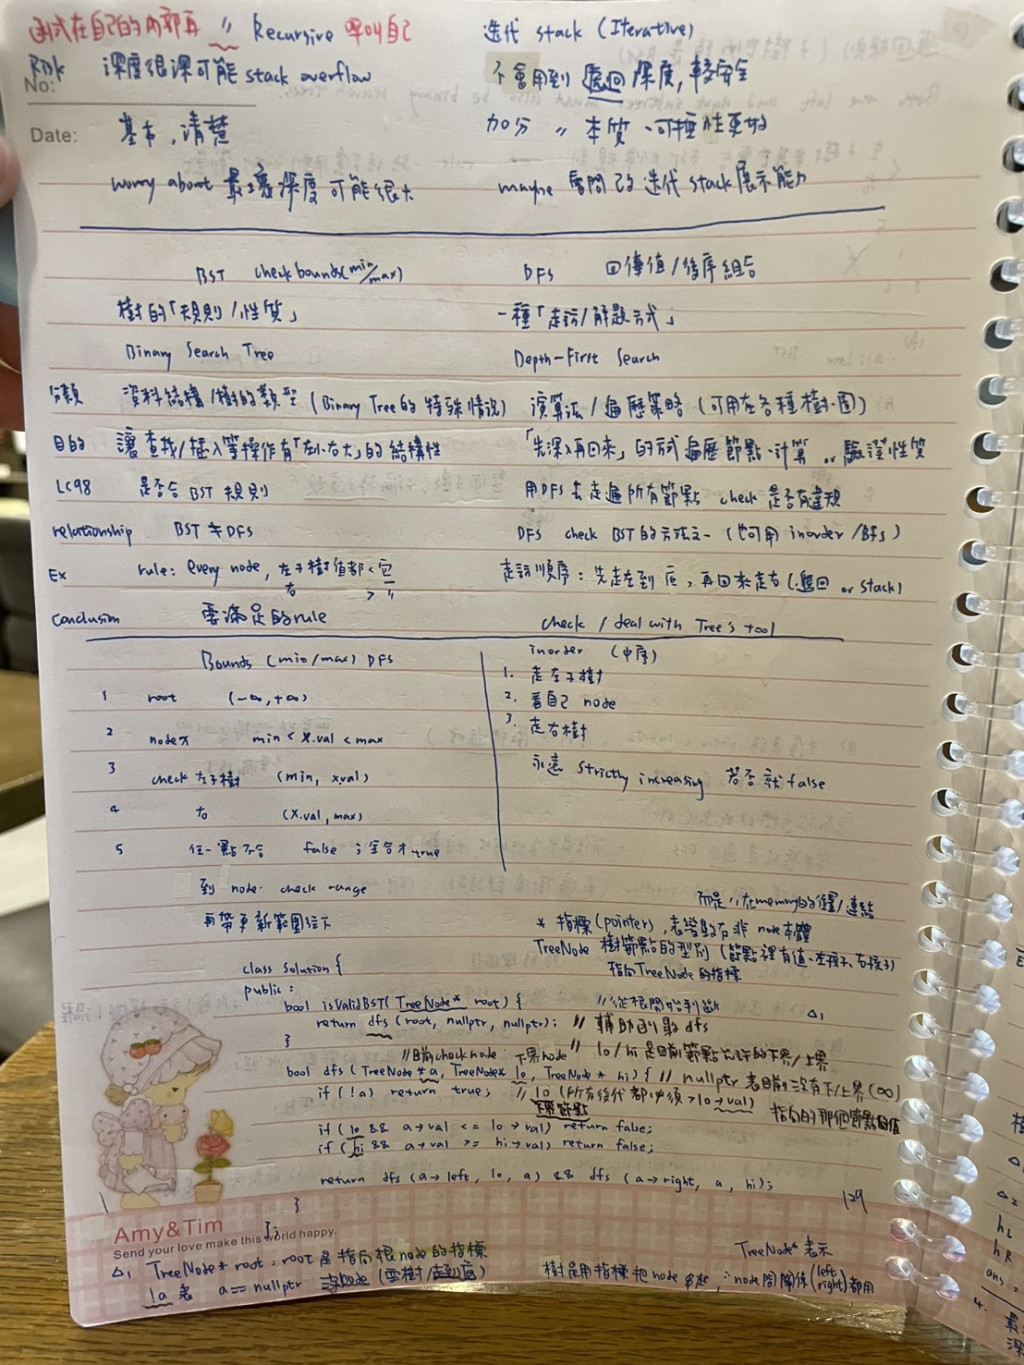 函式在自己的內部再 〃 Recursive 呼叫自己
迭代 stack (Iterative)
Risk 深度很深可能 stack overflow
不會用到遞迴深度,較安全
No:
Date:
基本,清楚
加分 〃 本質、可控性更好
worry about 最壞深度可能很大
maybe 會問改迭代 stack 展示能力
BST check bounds(min/max)
DFS 回傳值/後序組合
樹的「規則/性質」
一種「走訪/解題方式」
Binary Search Tree
Depth-First Search
分類 資料結構/樹的類型 (Binary Tree的特殊情況)
演算法/遍歷策略 (可用在各種樹、圖)
目的 讓查找/插入等操作有「左小右大」的結構性
「先深入再回來」的方式遍歷節點、計算 or 驗證性質
LC98 是否合 BST 規則
用DFS去走遍所有節點 check 是否有違規
relationship BST ≠ DFS
DFS check BST的方法之一 (也可用 inorder / BFS)
Ex rule: every node, 左子樹值都 < 它
右 > 〃
走訪順序: 先走左到底, 再回來走右 (遞迴 or stack)
Conclusion 要滿足的rule
check / deal with Tree's tool
Bounds (min/max) DFS
1 root (-∞, +∞)
2 node x min < x.val < max
3 check 左子樹 (min, x.val)
4 右 (x.val, max)
5 任一點不合 false ; 全合才 true
到 node. check range
再帶更新範圍往下
inorder (中序)
1. 走左子樹
2. 看自己 node
3. 走右樹
永遠 strictly increasing 若否就 false
而是〃在memory的位置/連結
* 指標(pointer), 表當取右非 node本體
TreeNode 樹節點的型別 (節點裡有值、左孩子、右孩子)
指向TreeNode 的指標
class Solution {
public :
bool isValidBST( TreeNode* root) { //從根開始判斷 △1
return dfs (root, nullptr, nullptr); // 輔助函數 dfs
}
//目前check node 下界node // lo/hi 是目前節點允許的下界/上界
bool dfs ( TreeNode *a, TreeNode* lo, TreeNode * hi) { // nullptr 表目前沒有下/上界 (∞)
if ( !a) return true; // lo (所有後代都必須 > lo→val)
下界節點 指向的那個節點的值
if ( lo && a→val <= lo→val) return false;
if ( hi && a→val >= hi→val) return false;
return dfs (a→left, lo, a) && dfs (a→right, a, hi);
}
};
129
Amy&Tim
Send your love make this world happy.
△1 TreeNode * root : root 是指向根node的指標
!a 表 a == nullptr 沒node (空樹/走到底)
TreeNode* 表示
樹是用指標把node串起, ∴node間關係(left/right)都用